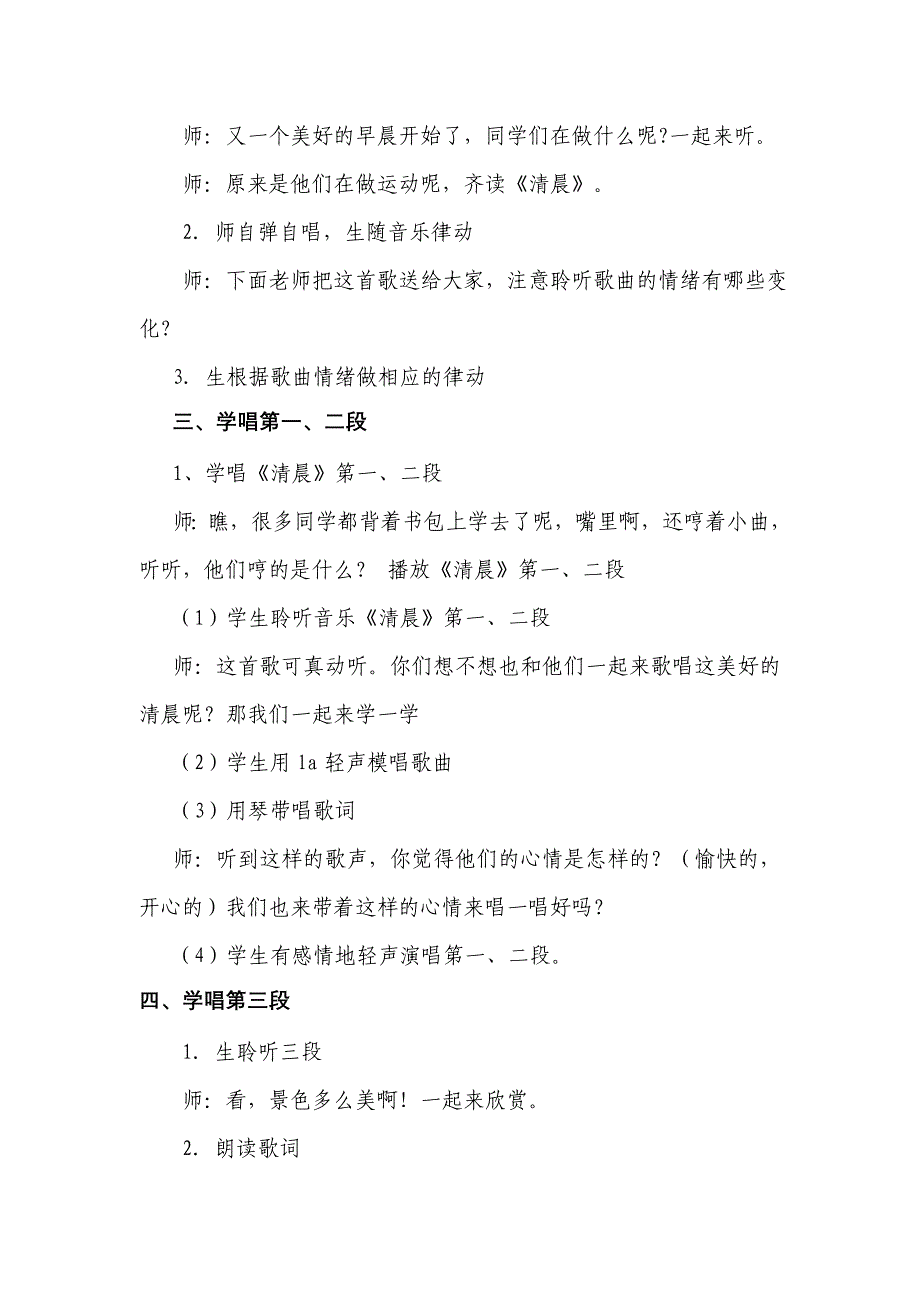 师：又一个美好的早晨开始了，同学们在做什么呢?一起来听。
师：原来是他们在做运动呢，齐读《清晨》。
2．师自弹自唱，生随音乐律动
师：下面老师把这首歌送给大家，注意聆听歌曲的情绪有哪些变
化？
3．生根据歌曲情绪做相应的律动
三、学唱第一、二段
1、学唱《清晨》第一、二段
师：瞧，很多同学都背着书包上学去了呢，嘴里啊，还哼着小曲，
听听，他们哼的是什么？ 播放《清晨》第一、二段
（1）学生聆听音乐《清晨》第一、二段
师：这首歌可真动听。你们想不想也和他们一起来歌唱这美好的
清晨呢？那我们一起来学一学
（2）学生用 la 轻声模唱歌曲
（3）用琴带唱歌词
师：听到这样的歌声，你觉得他们的心情是怎样的？（愉快的，
开心的）我们也来带着这样的心情来唱一唱好吗？
（4）学生有感情地轻声演唱第一、二段。
四、学唱第三段
1．生聆听三段
师：看，景色多么美啊！一起来欣赏。
2．朗读歌词